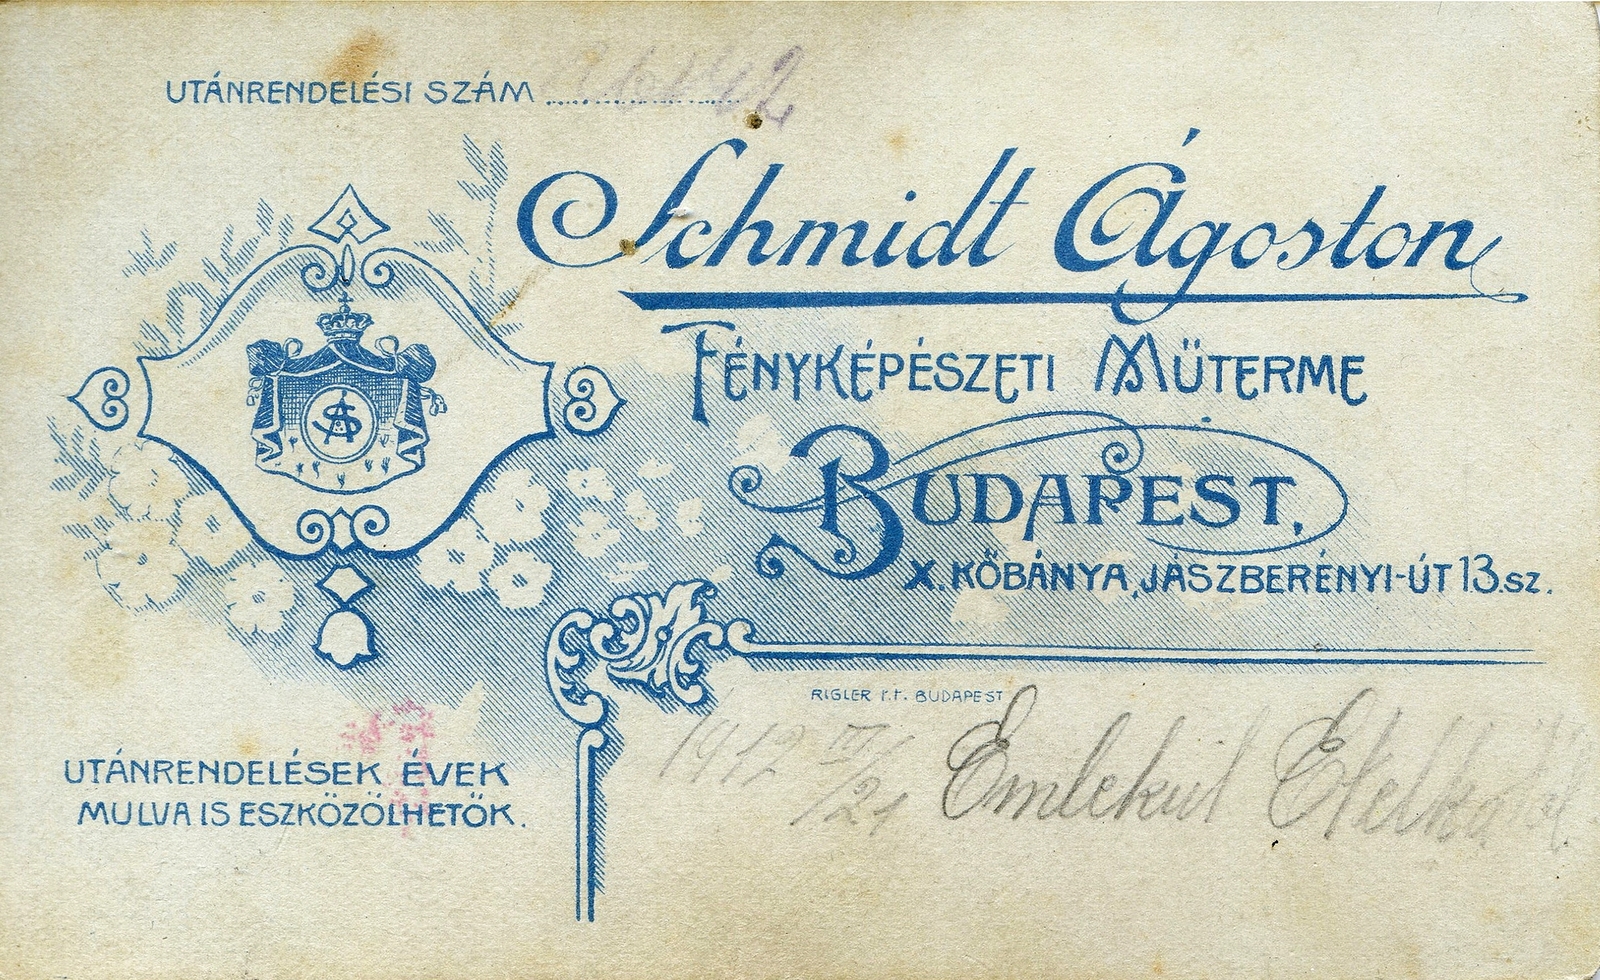 UTÁNRENDELÉSI SZÁM
Schmidt Ágoston
FÉNYKÉPÉSZETI MŰTERME
BUDAPEST,
X. KŐBÁNYA, JÁSZBERÉNYI-ÚT 13. SZ.
RIGLER r.t. BUDAPEST
1912 IV/21
Emlékül Etelkától
UTÁNRENDELÉSEK ÉVEK
MULVA IS ESZKÖZÖLHETŐK.
SA